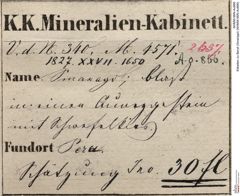 K.K. Mineralien-Kabinett.
V.d. N. 340, M. 4571.
1827. XXVII. 1650
A.g. 860.
Name Smaragd; blass
in einem
mit Schwefelkies
Fundort Peru
Schätzung Ino. 30 fl